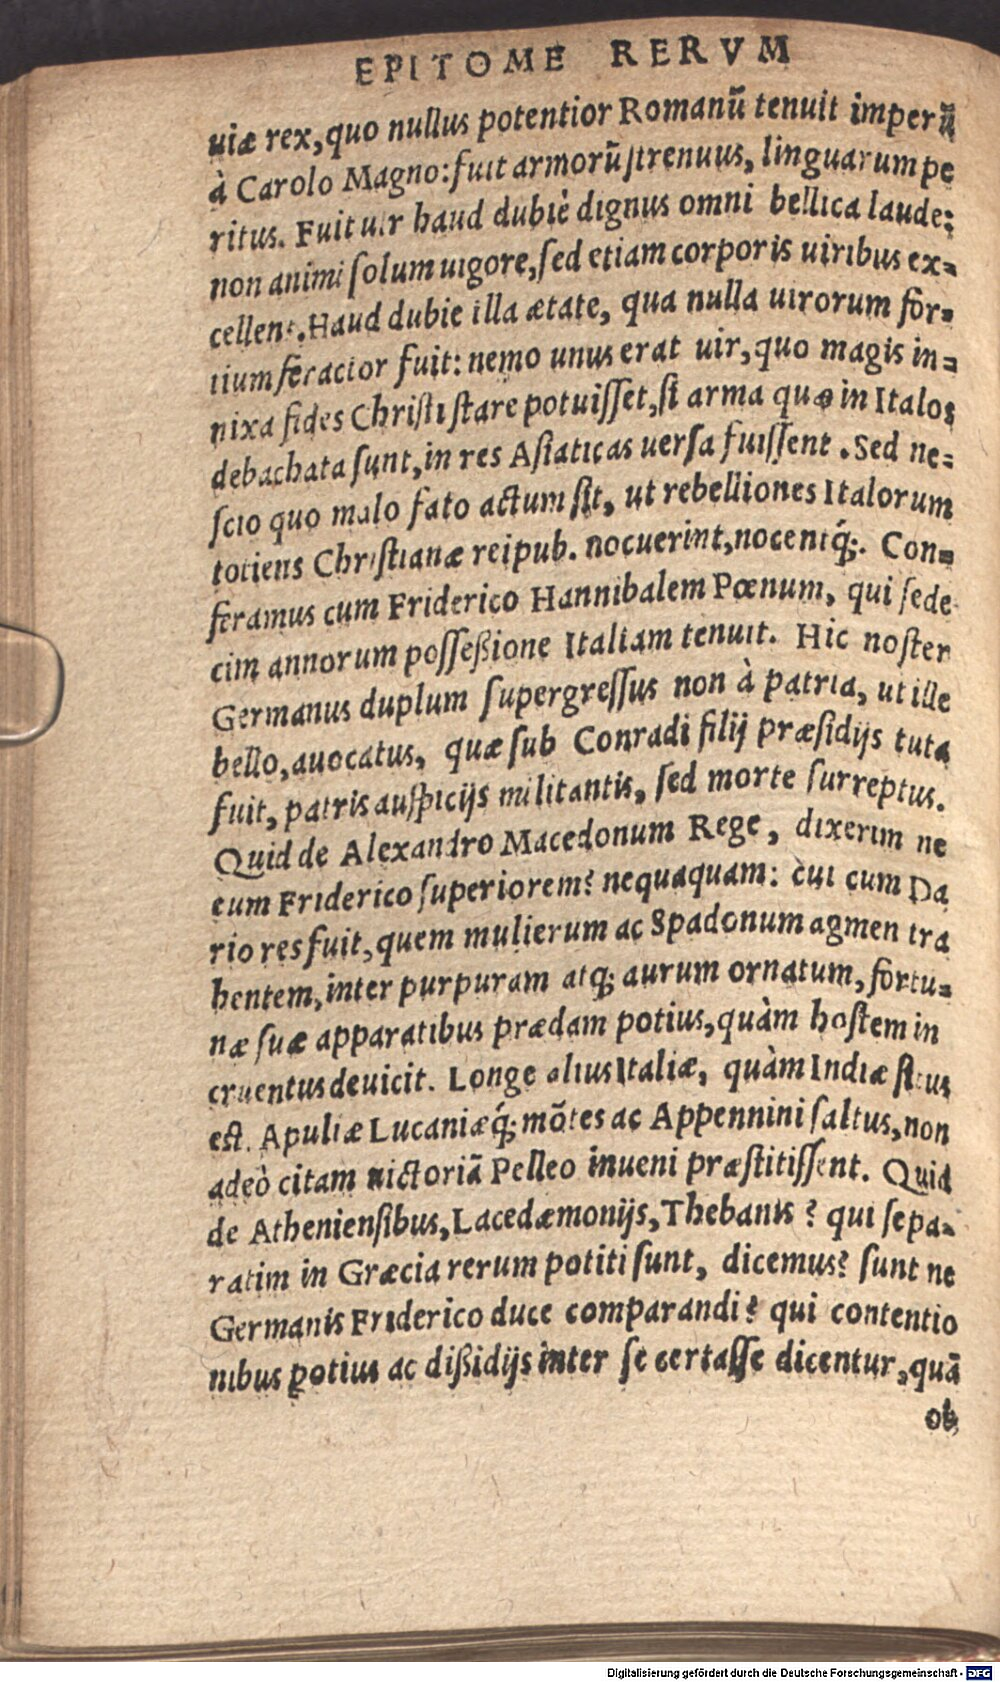 EPITOME RERVM
uiæ rex, quo nullus potentior Romanū tenuit imperiū
à Carolo Magno: fuit armorū ſtrenuus, linguarum pe
ritus. Fuit uir haud dubiè dignus omni bellica laude:
non animi ſolum uigore, ſed etiam corporis uiribus ex=
cellens. Haud dubie illa ætate, qua nulla uirorum for=
tium feracior fuit: nemo unus erat uir, quo magis in=
nixa fides Chriſti ſtare potuiſſet, ſi arma quæ in Italos
debachata ſunt, in res Aſiaticas uerſa fuiſſent. Sed ne=
ſcio quo malo fato actum ſit, ut rebelliones Italorum
totiens Chriſtianæ reipub. nocuerint, nocentq́;. Con=
feramus cum Friderico Hannibalem Pœnum, qui ſede
cim annorum poſſeßione Italiam tenuit. Hic noſter
Germanus duplum ſupergreſſus non à patria, ut ille
bello, auocatus, quæ ſub Conradi filij præſidijs tuta
fuit, patris auſpicijs militantis, ſed morte ſurreptus.
Quid de Alexandro Macedonum Rege, dixerim ne
eum Friderico ſuperiorem? nequaquam: cui cum Da
rio res fuit, quem mulierum ac Spadonum agmen tra
hentem, inter purpuram atq; aurum ornatum, fortu=
næ ſuæ apparatibus prædam potius, quàm hoſtem in
cruentus deuicit. Longe alius Italiæ, quàm Indiæ ſitus
eſt. Apuliæ Lucaniæq́; mōtes ac Appennini ſaltus, non
adeò citam uictoriā Pelleo inueni præſtitiſſent. Quid
de Athenienſibus, Lacedæmonijs, Thebanis? qui ſepa=
ratim in Græcia rerum potiti ſunt, dicemus? ſunt ne
Germanis Friderico duce comparandi? qui contentio
nibus potius ac dißidijs inter ſe certaſſe dicentur, quā
ob
Digitalisierung gefördert durch die Deutsche Forschungsgemeinschaft - DFG